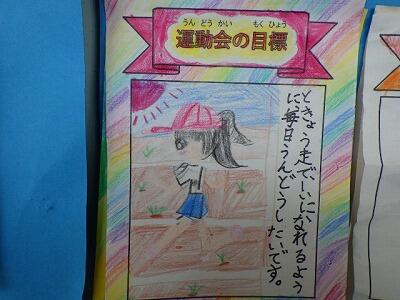 うん どう かい もく ひょう
運動会の目標
ときょう走で、一いになれるよう
に、毎日うんどうしたいです。